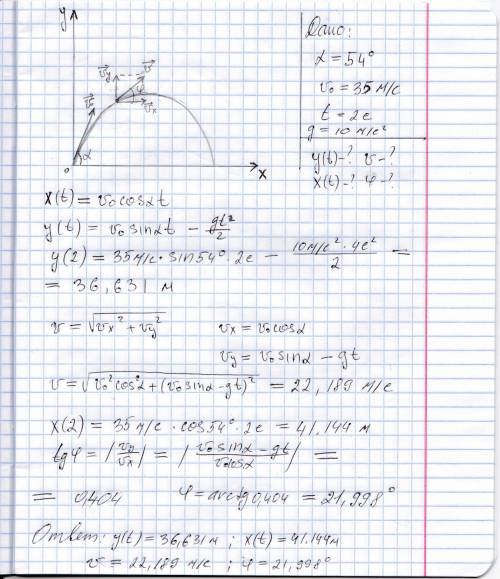 y
Дано:
α = 54°
v₀ = 35 м/с
t = 2с
g = 10 м/с²
y(t)-? v-?
x(t)-? φ-?
v⃗y v⃗
φ
v⃗x
v⃗
α
0 x
x(t) = v₀cosαt
y(t) = v₀sinαt - gt²/2
y(2) = 35м/с·sin54°·2с - 10м/с²·4с²/2 =
= 36,631 м
v = √(vx² + vy²) vx = v₀cosα
vy = v₀sinα - gt
v = √(v₀²cos²α + (v₀sinα - gt)²) = 22,189 м/с
x(2) = 35 м/с · cos54° · 2с = 41.144 м
tgφ = |vy/vx| = |(v₀sinα - gt)/(v₀cosα)| =
= 0,404 φ = arctg0,404 = 21,998°
Ответ: y(t) = 36,631 м ; x(t) = 41.144м
v = 22,189 м/с ; φ = 21,998°